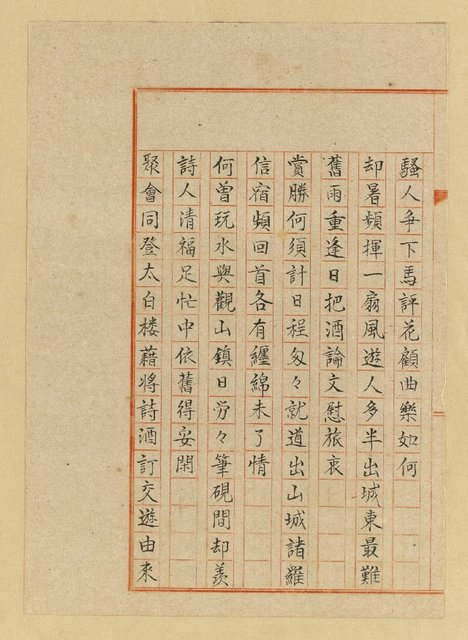 騷人爭下馬評花顧曲樂如何
却暑頻揮一扇風遊人多半出城東最難
舊雨重逢日把酒論文慰旅衷
賞勝何須計日程匆々就道出山城諸羅
信宿頻回首各有纏綿未了情
何曾玩水與觀山鎮日勞々筆硯間却羨
詩人清福足忙中依舊得妥閑
聚會同登太白楼藉將詩酒訂交遊由來